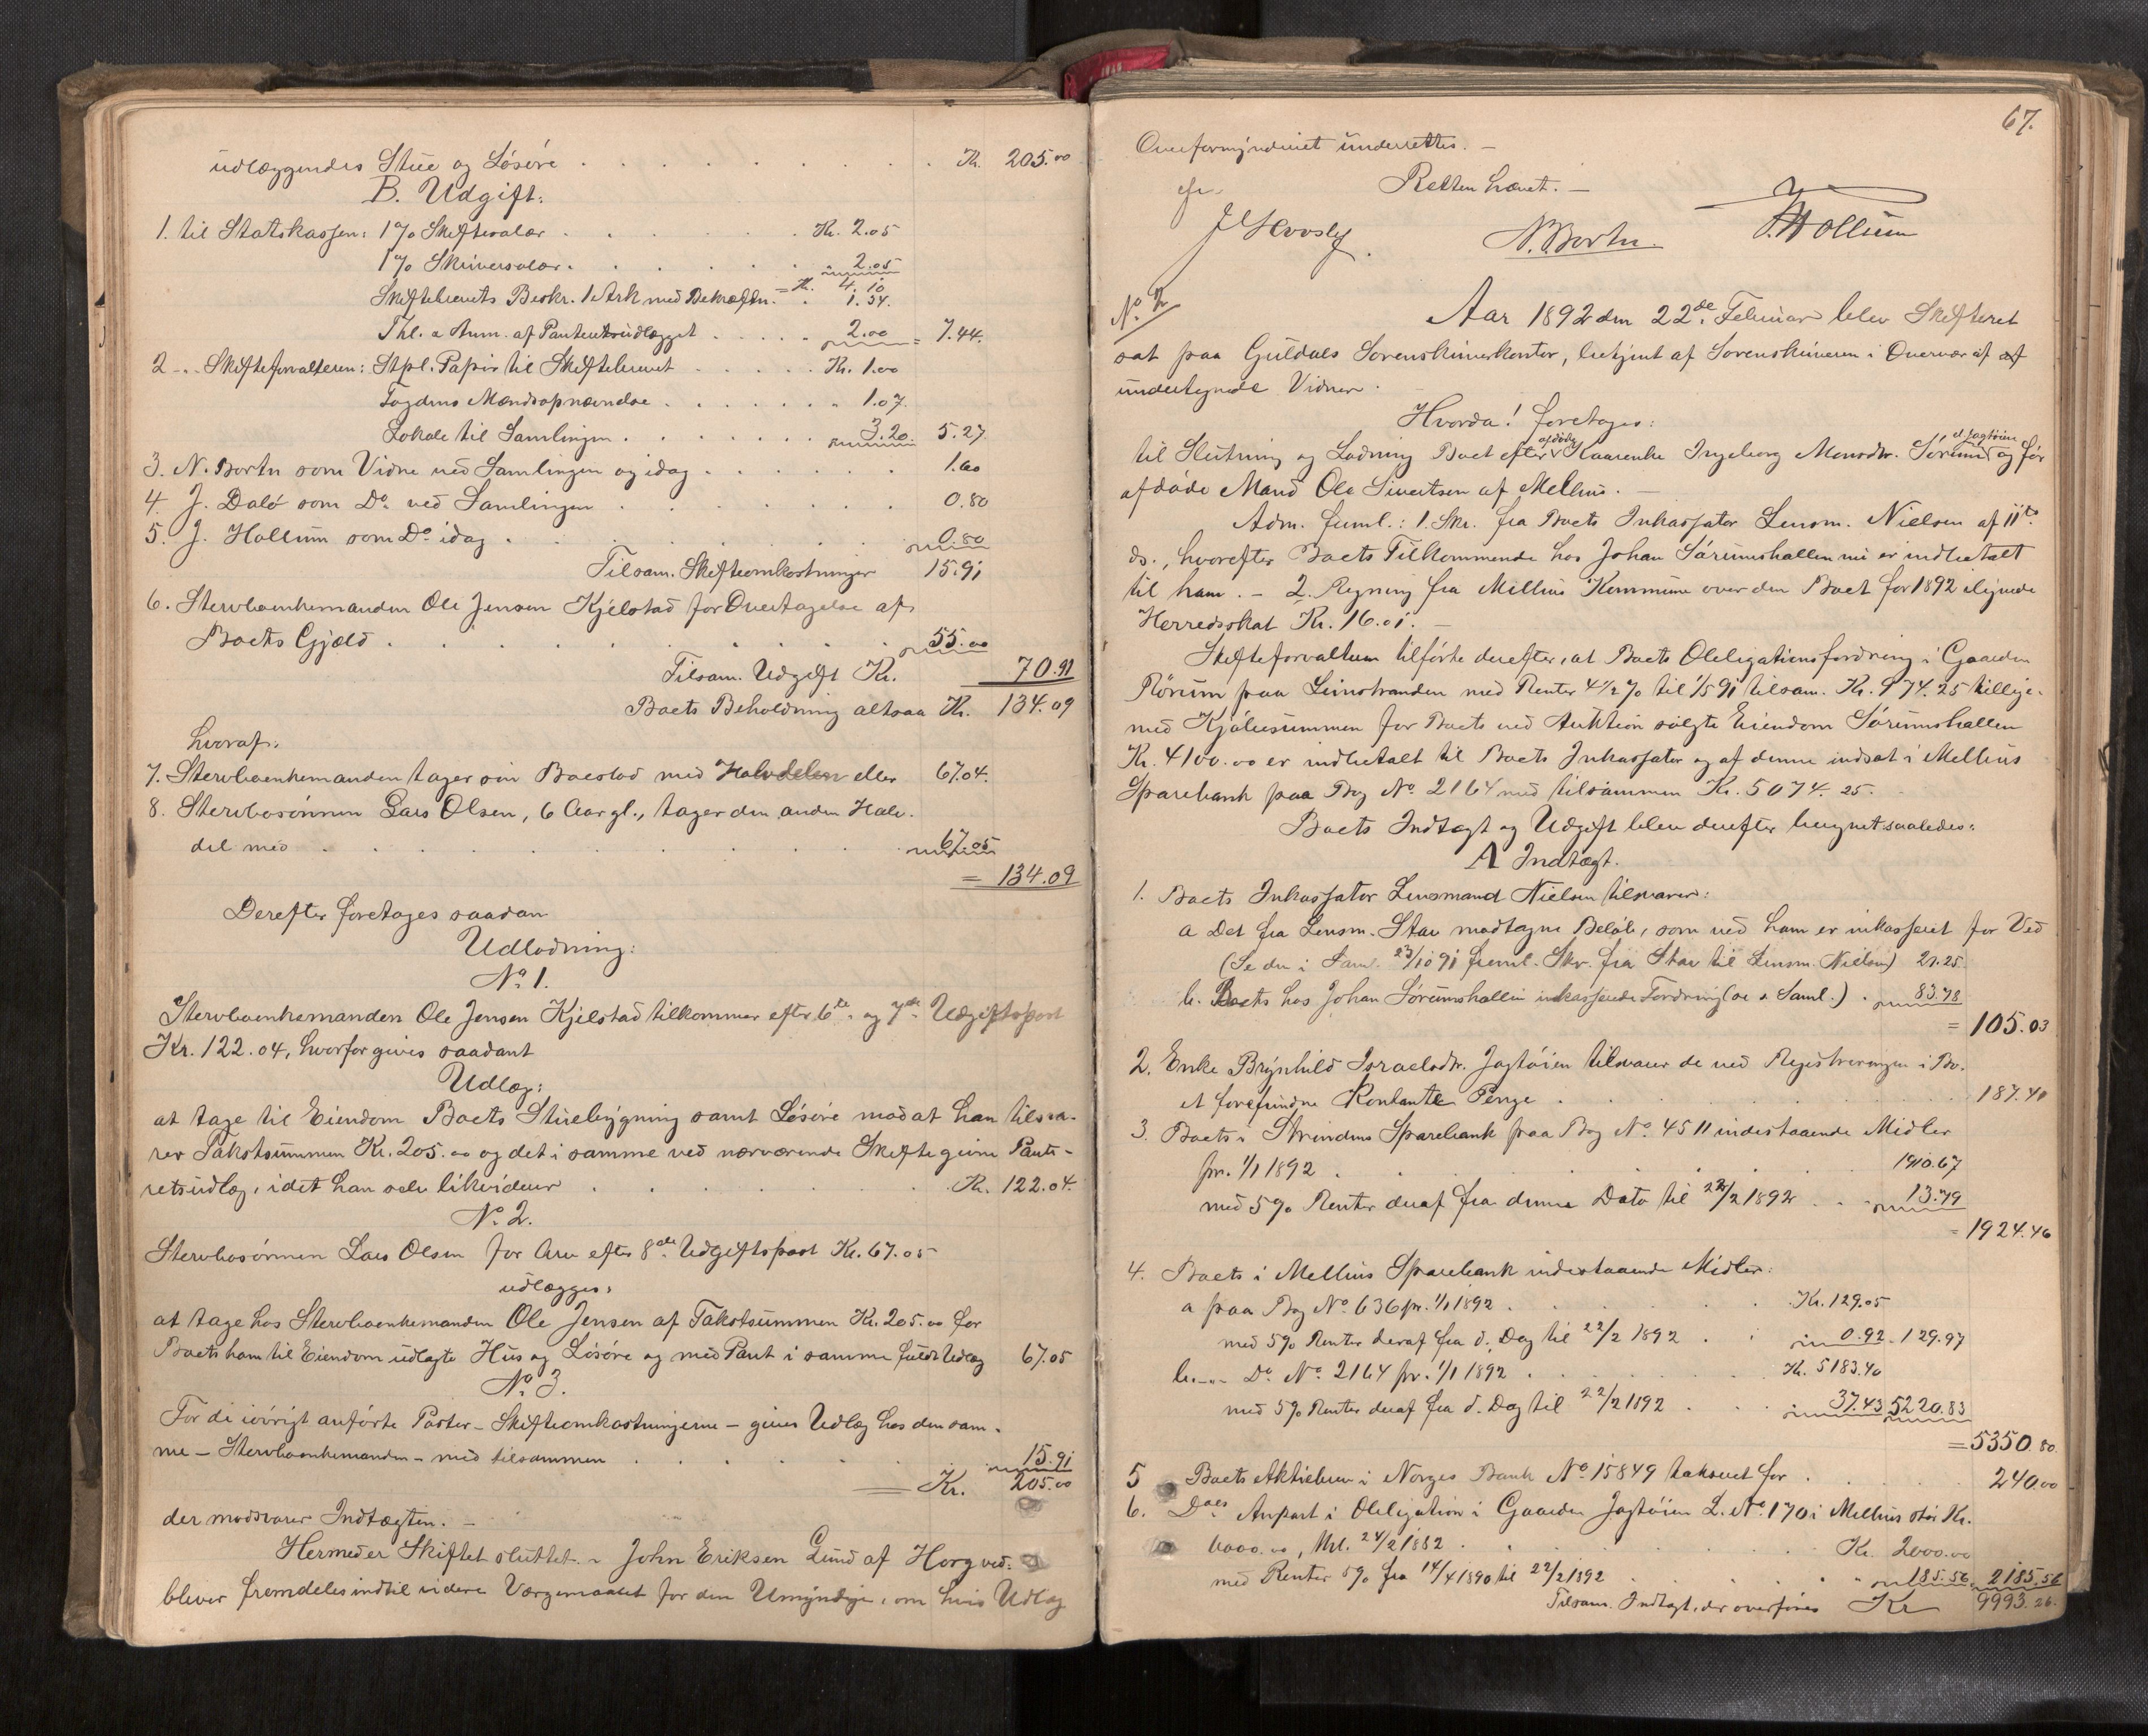 udlæggendes Stue og Løsøre . . . . . . . . . Kr. 205.00
B. Udgift:
1. til Statskassen: 1 % Skiftesalær . . . . . . Kr. 2.05
1 % Skriversalær. . . . . . . „ 2.05
= Kr. 4.10
Skiftebrevets Beskr. 1 Ark med Bekræftn. . 1.34.
Thl. a Anm. af Panteretsudlægget . . . . . 2.00 = 7.44.
2 -„- Skifteforvalteren: Stpl. Papir til Skiftebrevet . . . . . Kr. 1.00
Fogdens Mændsopnævnelse . . . . . . „ 1.07.
Lokale til Samlingen . . . . . . . 3.20. 5.27
3. N. Bortn som Vidne ved Samlingen og idag . . . . . . 1.60
4. J. Dalø som Do. ved Samlingen . . . . . . . 0.80
5. J. Hollum som Do. idag . . . . . . . . 0.80
Tilsam. Skifteomkostninger 15.91
6. Stervboenkemanden Ole Jensen Kjelstad for Overtagelse af
Boets Gjæld . . . . . . . . . . 55.00
Tilsam. Udgift Kr. 70.91
Boets Beholdning altsaa Kr. 134.09
hvoraf:
7. Stervboenkemanden tager sin Boeslod med Halvdelen eller 67.04.
8. Stervbosønnen Lars Olsen, 6 Aar gl., tager den anden Halv-
del med . . . . . . . . . . 67.05
= 134.09
Derefter foretages saadan
Udlodning:
No. 1.
Stervboenkemanden Ole Jensen Kjelstad tilkommer efter 6te og 7de Udgiftspost
Kr. 122.04, hvorfor gives saadant
Udlæg:
at tage til Eiendom Boets Stuebygning samt Løsøre mod at han tilsva-
rer Takstsummen Kr. 205.00 og det i samme ved nærværende Skifte givne Pante-
retsudlæg, idet han selv likviderer . . . . . . . Kr. 122.04.
No. 2.
Stervbosønnen Lars Olsen for Arv efter 8de Udgiftspost Kr. 67.05
udlægges:
at tage hos Stervboenkemanden Ole Jensen af Takstsummen Kr. 205.00 for
Boets ham til Eiendom udlagte Hus og Løsøre og med Pant i samme fuldt Udlæg 67.05
No. 3.
For de iøvrigt anførte Poster - Skifteomkostningerne - gives Udlæg hos den sam-
me - Stervboenkemanden - med tilsammen . . . . . . . 15.91
= Kr. 205.00
der modsvarer Indtægten. -
Hermed er Skiftet sluttet. - John Eriksen Lund af Horg ved-
bliver fremdeles indtil videre Værgemaalet for den Umyndige, om hvis Udlæg
67.
Overformynderiet underrettes. -
Retten hævet. -
N. Bortn
J. Hollum
No. 2
Aar 1892 den 22de Februar blev Skifteret
sat paa Guldals Sorenskriverkontor, betjent af Sorenskriveren i Overvær af af
undertegnede Vidner.
Hvorda! foretoges:
til Slutning og Lodning Boet efter afdøde Kaarenke Ingeborg Monsdtr. Sørum, el. Jagtøien og før
afdøde Mand Ole Sivertsen af Melhus. -
Adm. freml.: 1. Skr. fra Boets Inkassator Lensm. Nielsen af 11te
ds., hvorefter Boets Tilkommende hos Johan Sørumshallen nu er indbetalt
til ham. - 2. Regning fra Melhus Kommune over den Boet for 1892 ilignede
Herredsskat Kr. 16.01. -
Skifteforvalteren tilførte derefter, at Boets Obligationsfordring i Gaarden
Rørum paa Leinstranden med Renter 4 1/2 % til 1/5 91 tilsam. Kr. 974.25 tillige-
med Kjøbesummen for Boets ved Auktion solgte Eiendom Sørumshallen
Kr. 4100.00 er indbetalt til Boets Inkassator og af denne indsat i Melhus
Sparebank paa Bog No. 2164 med tilsammen Kr. 5074.25.
Boets Indtægt og Udgift blev derefter beregnet saaledes:
A Indtægt.
1. Boets Inkassator Lensmand Nielsen tilsvarer:
a Det fra Lensm. Stav modtagne Beløb, som ved ham er inkasseret for Ved
(Se den i Saml. 23/10 91 freml. Skr. fra Stav til Lensm. Nielsen) 21.25.
b. Boets hos Johan Sørumshallen inkasserede Fordring (se s. Saml.) . 83.78
= 105.03
2. Enke Brynhild Israelsdtr. Jagtøien tilsvarer de ved Registreringen i Bo-
et forefundne Kontante Penge . . . . . . . . 187.40
3. Boets i Strindens Sparebank paa Bog No. 4511 indestaaende Midler
pr. 1/1 1892 . . . . . . . . . 1910.67
med 5 % Renter deraf fra denne Dato til 22/2 1892 . . - 13.79
= 1924.46
4. Boets i Melhus Sparebank indestaaende Midler:
a paa Bog No. 636 pr. 1/1 1892 . . . . . . Kr. 129.05
med 5 % Renter deraf fra d. Dag til 22/2 1892 . . 0.92 - 129.97
b. -„- Do. No. 2164 pr. 1/1 1892 . . . . . Kr. 5183.40
med 5 % Renter deraf fra d. Dag til 22/2 1892 . . . 37.43 5220.83
= 5350.80.
5 Boets Aktiebrev i Norges Bank No. 15849 taxeret for . . . . 240.00
6. Does Anpart i Obligation i Gaarden Jagtøien L. No. 170 i Melhus stor Kr.
6000.00, thl. 24/2 1882 . . . . . . . . Kr. 2000.00
med Renter 5 % fra 14/4 1890 til 22/2 1892 . . . . „ 185.56 2185.56
Tilsam. Indtægt, der overføres Kr 9993.26.